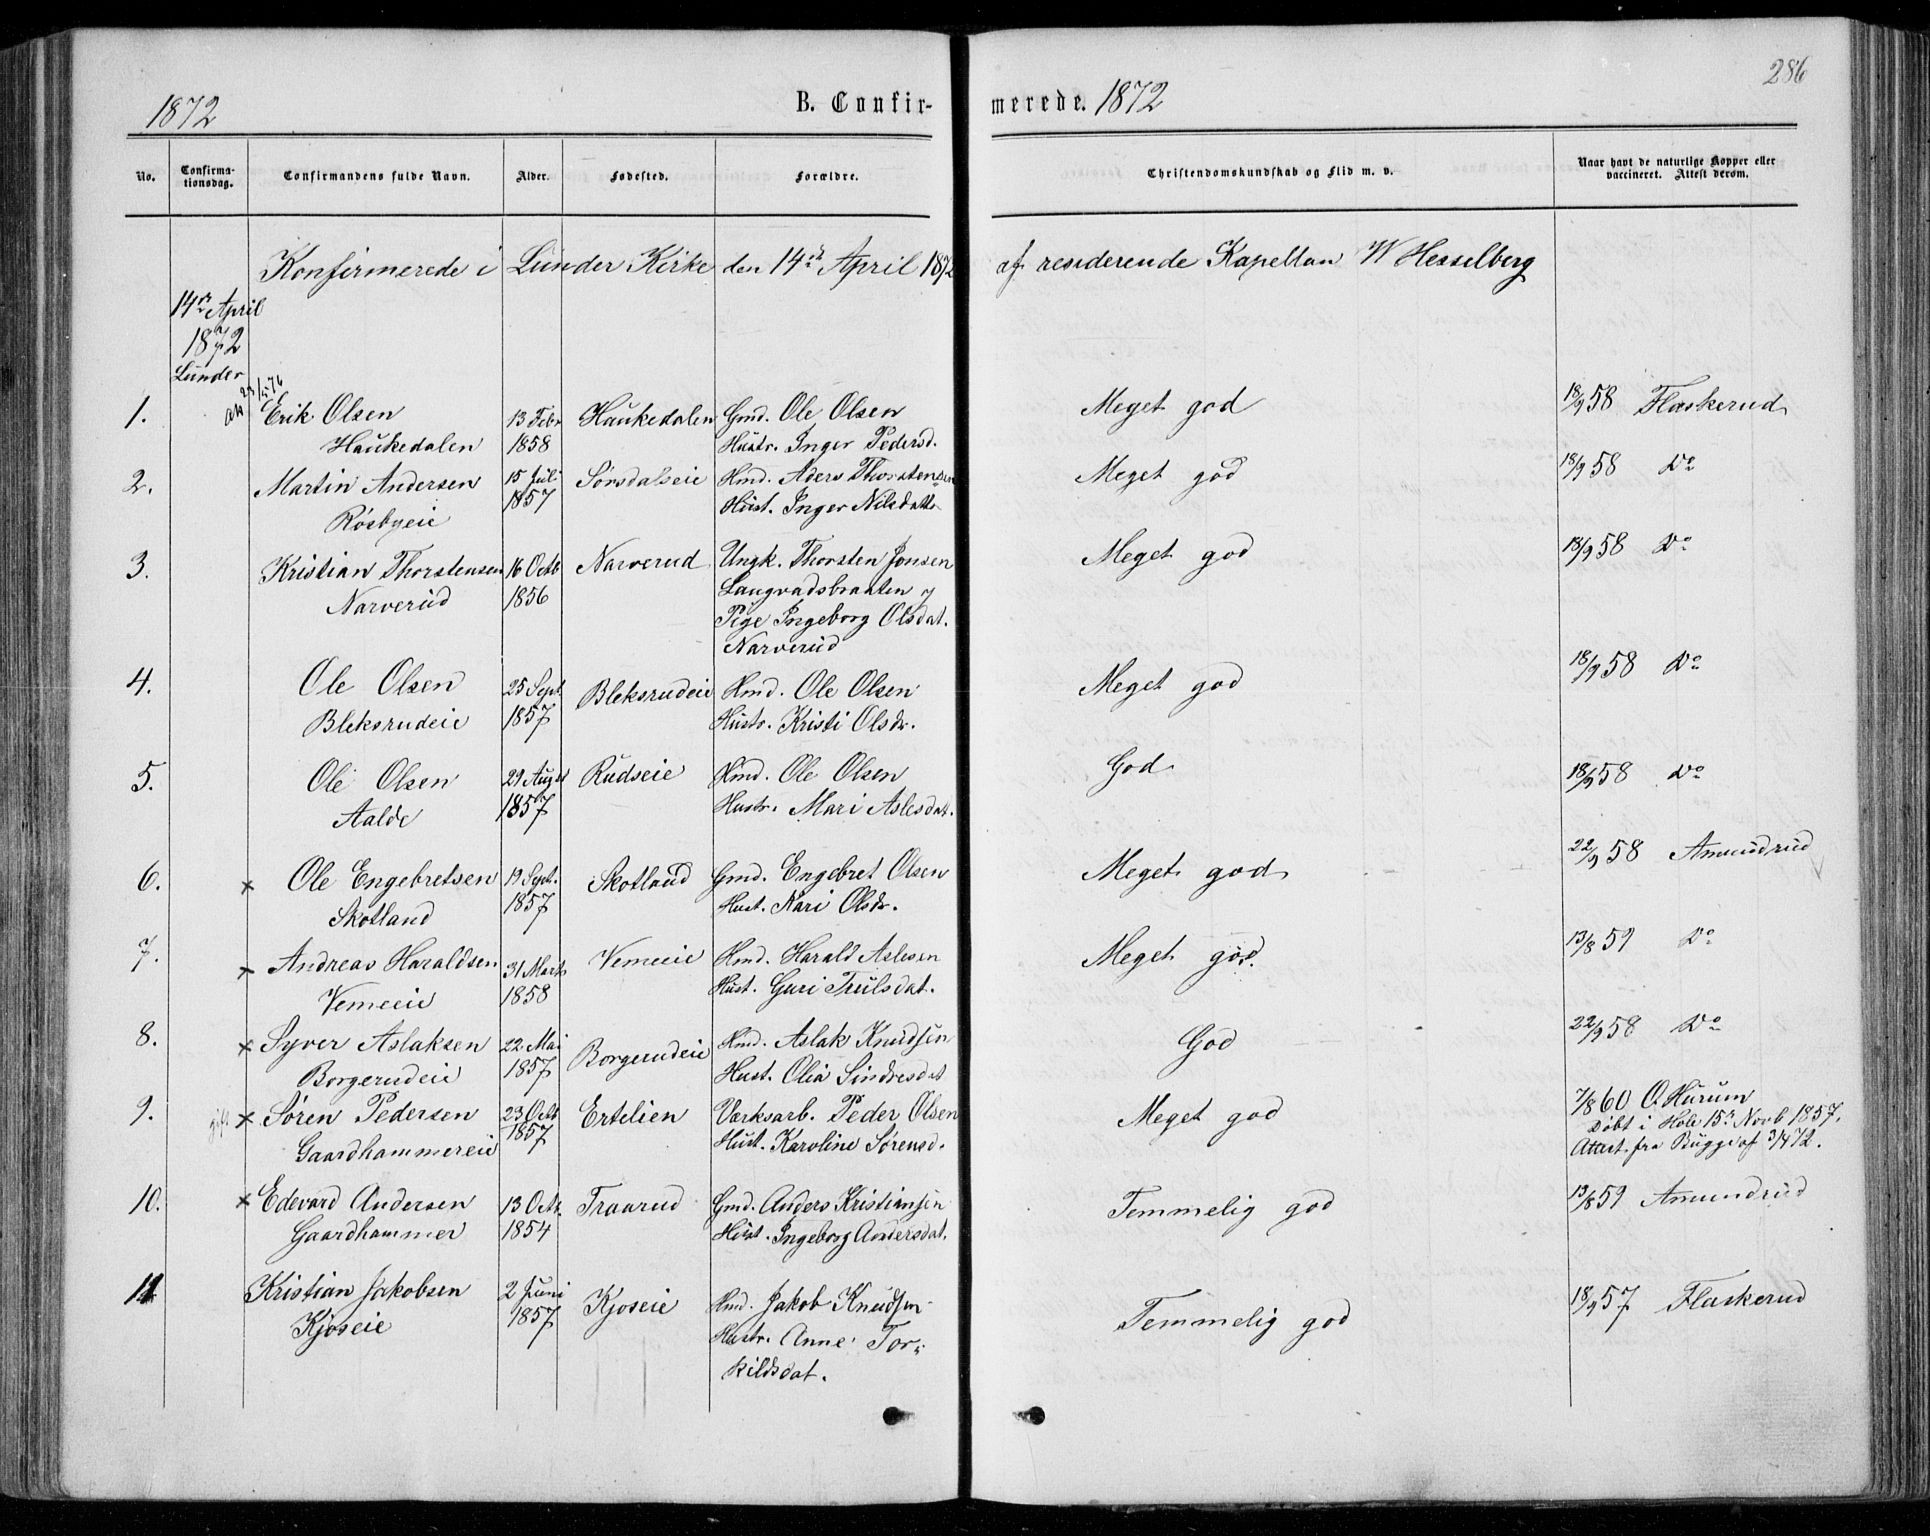 286
1872 B. Confirmerede. 1872
No. Confirmationsdag. Confirmandens fulde Navn. Alder. Fødested. Forældre. Christendomskundskab og Flid m. v. Naar havt de naturlige Kopper eller vaccineret. Attest derom.
Konfirmerede i Lunder Kirke den 14de April 1872 af residerende Kapellan W Hesselberg
14de April
1872
Lunder
1. Erik Olsen 13 Febr Haukedalen Gmd. Ole Olsen Meget god 18/9 58 Flaskerud
Haukedalen 1858 Hustr. Inger Pedersd.
2. Martin Andersen 15 Juli Sørsdalseie Hmd. Aders Thorstensen Meget god 18/9 58 Do
Røsbyeie 1857 Hust. Inger Nilsdatte
3. Kristian Thorstensen 16 Octb Narverud Ungk. Thorsten Jonsen Meget god 18/9 58 Do
Narverud 1856 Langvadsbraaten og
Pige Ingeborg Olsdat.
Narverud
4. Ole Olsen 25 Sept. Bleksrudeie Hmd. Ole Olsen Meget god 18/9 58 Do
Bleksrudeie 1857 Hustr. Kristi Olsdr.
5. Ole Olsen 29 Augst Rudseie Hmd. Ole Olsen God 18/9 58 Do
Aalde 1857 Hustr. Mari Aslesdat.
6. × Ole Engebretsen 19 Sept. Skotland Gmd. Engebret Olsen Meget god 22/9 58 Amundrud
Skotland 1857 Hust. Kari Olsdr.
7. × Andreas Haraldsen 31 Marts Vemeeie Hmd. Harald Aslesen Meget god. 13/8 59 Do
Vemeeie 1858 Hust. Guri Trulsdat.
8. × Syver Aslaksen 22 Mai Borgerudeie Hmd. Aslak Knudsen God 22/9 58 Do
Borgerudeie 1857 Hust. Olia Sindresdat
9. × Søren Pedersen 23 Octb Ertelien Værksarb. Peder Olsen Meget god 7/8 60 O. Hurum
Gaardhammereie 1857 Hust. Karoline Sørensd. Døbt i Hole 15de Novb 1857.
Attest fra Bugge af 3/4 72.
10. × Edevard Andersen 13 Octr. Traarud Gmd. Anders Kristiansen Temmelig god 13/8 59 Amundrud
Gaardhammer 1854 Hust. Ingeborg Andersdat.
11 Kristian Jakobsen 2 Juni Kjoseie Hmd. Jakob Knudsen Temmelig god 18/9 57 Flaskerud
Kjoseie 1857 Hustr. Anne Tor-
kildsdat.